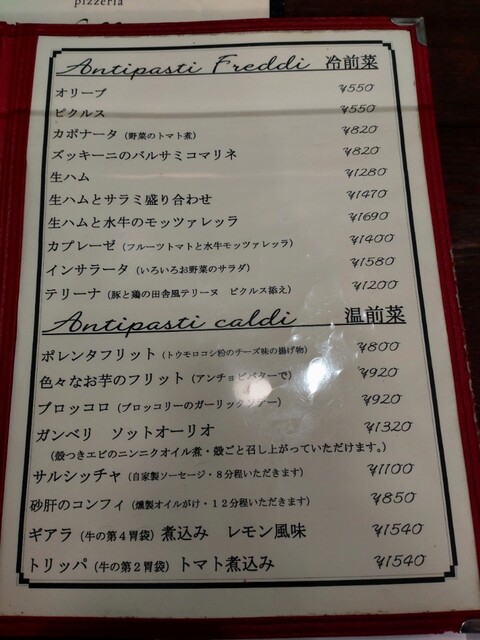 pizzeria
Antipasti Freddi 冷前菜
オリーブ ¥550
ピクルス ¥550
カポナータ（野菜のトマト煮） ¥820
ズッキーニのバルサミコマリネ ¥820
生ハム ¥1280
生ハムとサラミ盛り合わせ ¥1470
生ハムと水牛のモッツァレッラ ¥1690
カプレーゼ（フルーツトマトと水牛モッツァレラ） ¥1400
インサラータ（いろいろお野菜のサラダ） ¥1580
テリーナ（豚と鶏の田舎風テリーヌ ピクルス添え） ¥1200
Antipasti caldi 温前菜
ポレンタフリット（トウモロコシ粉のチーズ味の揚げ物） ¥800
色々なお芋のフリット（アンチョビバターで） ¥920
ブロッコロ（ブロッコリーのガーリックソテー） ¥920
ガンベリ ソットオーリオ ¥1320
（殻つきエビのニンニクオイル煮・殻ごと召し上がっていただけます。）
サルシッチャ（自家製ソーセージ・８分程いただきます） ¥1100
砂肝のコンフィ（燻製オイルがけ・１２分程いただきます） ¥850
ギアラ（牛の第４胃袋）煮込み レモン風味 ¥1540
トリッパ（牛の第２胃袋）トマト煮込み ¥1540